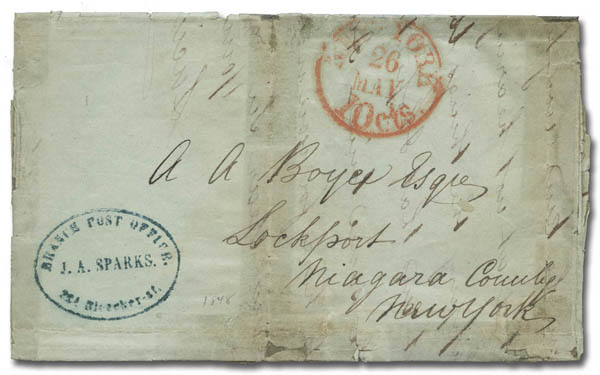 NEW YORK
26
MAY
10cts
A A Boyce Esqre
Lockport
Niagara County
New York
BRANCH POST OFFICE.
J. A. SPARKS.
Bleecker-st.
1848